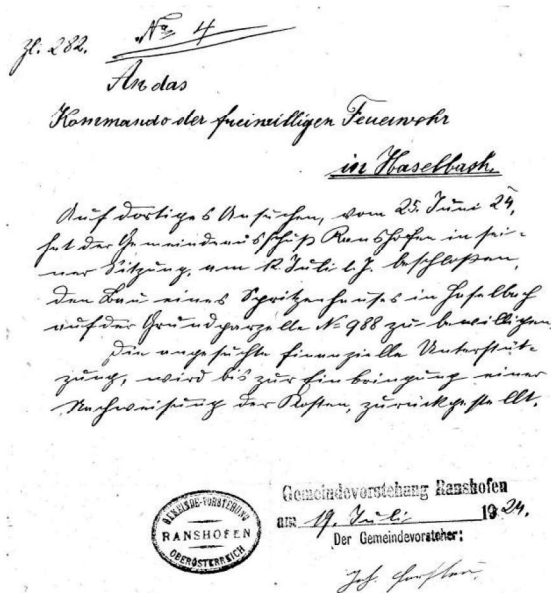 Zl. 282.
No 4
An das
Kommando der freiwilligen Feuerwehr
in Haselbach.
Auf dortiges Ansuchen, vom 25. Juni 24,
hat der Gemeindeausschuß Ranshofen in sei-
ner Sitzung, am 12. Juli l. J. beschloßen,
den Bau eines Spritzenhauses in Haselbach
auf der Grundparzelle No 988 zu bewilligen.
Die angesuchte finanzielle Unterstüt-
zung, wird bis zur Einbringung einer
Nachweisung der Kosten, zurückgestellt.
GEMEINDE-VORSTEHUNG
RANSHOFEN
OBERÖSTERREICH
Gemeindevorstehung Ranshofen
am 19. Juli 1924.
Der Gemeindevorsteher:
Joh.